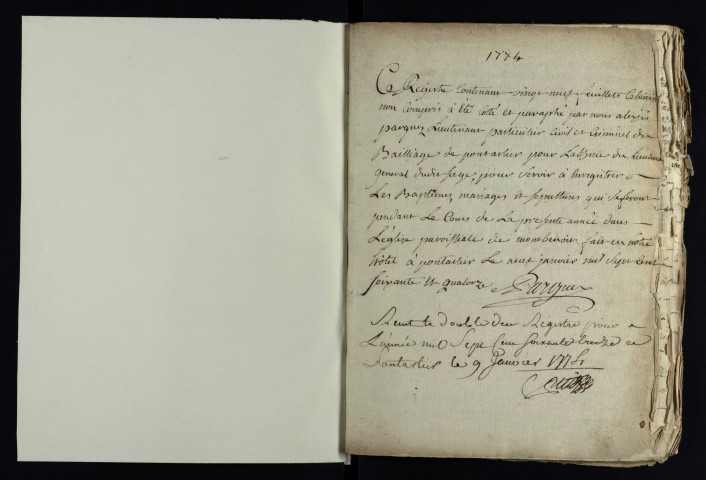 1774
Ce Registre Contenant vingt neuf feuillets
non Compris à été cotté et paraphé par nous alexis
parguez Lieutenant particulier Civil et Criminel du
Bailliage de pontarlier pour L'absence du Lieutenant
general dudit siege, pour servir à Enregistrer
Les Baptêmes, mariages et sepultures qui se feront
pendant Le Cours de La presente année dans
L'église paroissiale de montbenoit, fait en notre
hôtel à pontarlier Le neuf janvier mil sept cent
soixante et quatorze Parguez
Receu le double du Registre pour
L'année mil Sept Cent soixante treize
Pontarlier le 9 Janvier 1774